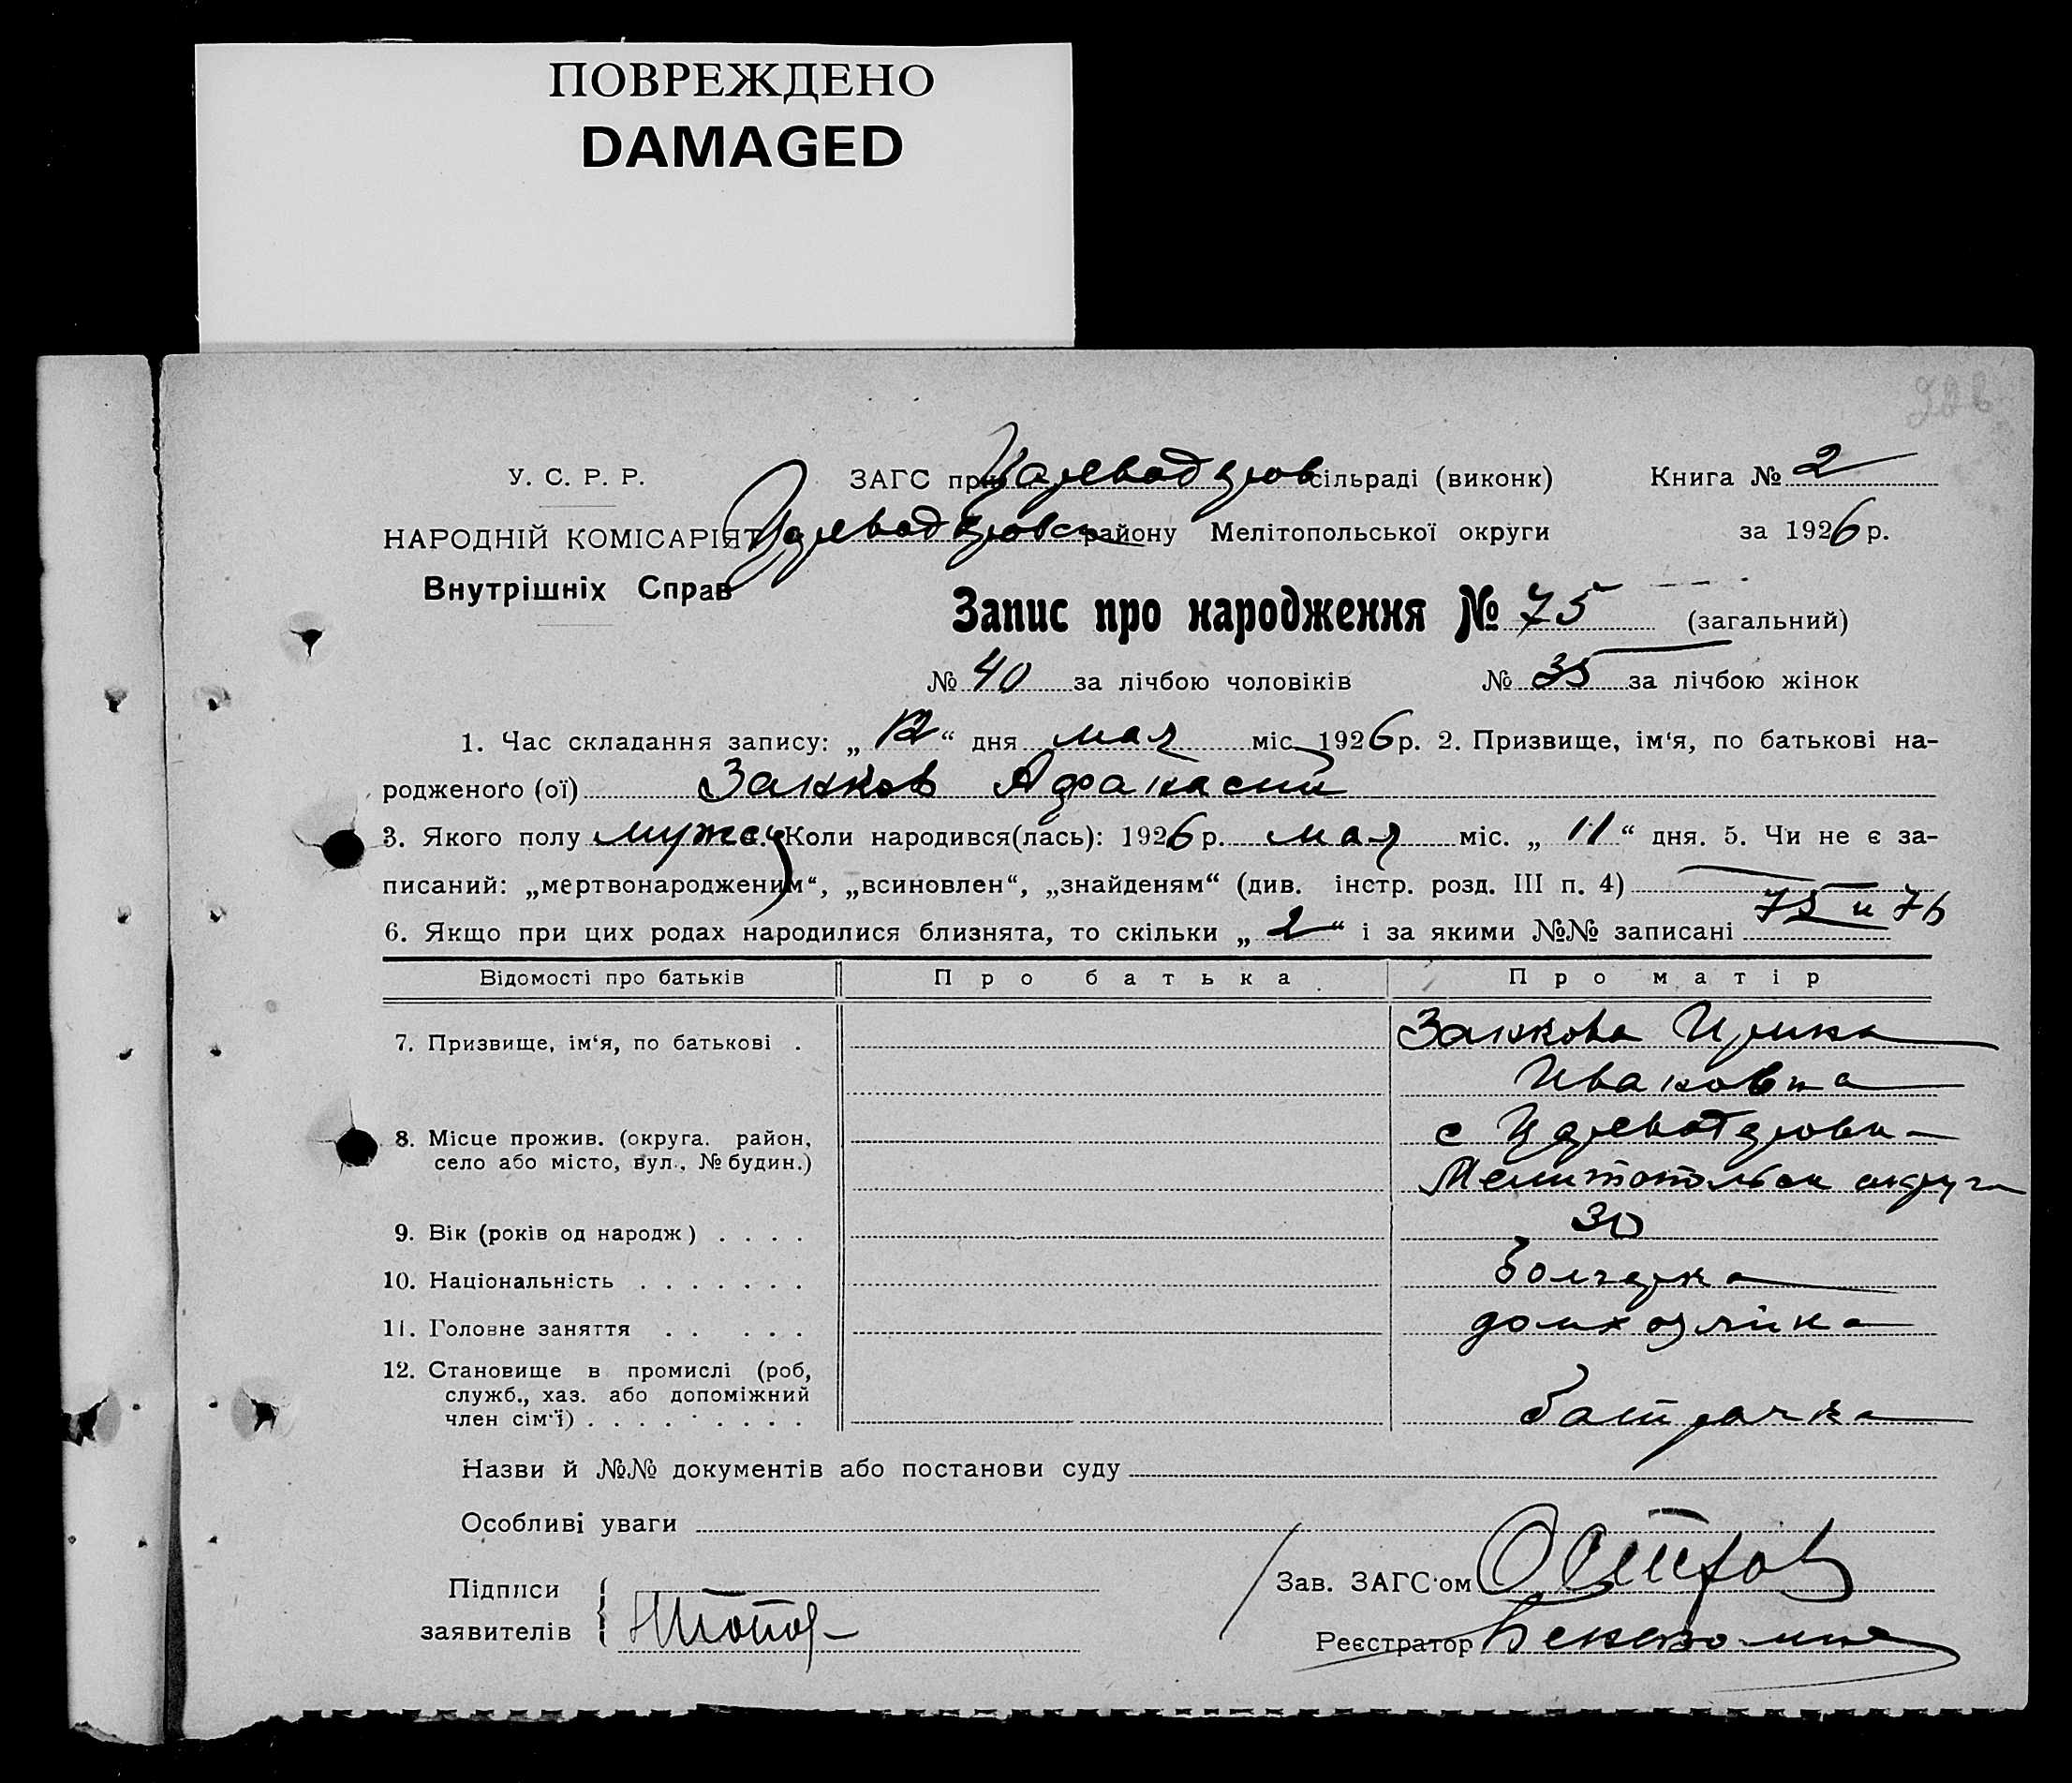 ПОВРЕЖДЕНО
DAMAGED
У. С. Р. Р.
НАРОДНІЙ КОМІСАРІЯТ
Внутрішніх Справ
ЗАГС при Царевадаров сільраді (виконк)
Царевадаровск району Мелітопольської округи
Книга № 2
за 1926 р.
Запис про народження № 75 (загальний)
№ 40 за лічбою чоловіків № 35 за лічбою жінок
1. Час складання запису: „12“ дня мая міс. 1926 р. 2. Призвище, ім‘я, по батькові на-
родженого (ої) Занков Афанасий
3. Якого полу мужс. Коли народився(лась): 1926 р. мая міс. „11“ дня. 5. Чи не є за-
писаний: „мертвонародженим“, „всиновлен“, „знайденям“ (див. інстр. розд. III п. 4)
6. Якщо при цих родах народилися близнята, то скільки „2“ і за якими №№ записані 75 и 76
Відомості про батьків Про батька Про матір
7. Призвище, ім‘я, по батькові . Занкова Ирина
Ивановна
8. Місце прожив. (округа. район, с Царевадаровк
село або місто, вул., № будин.) Мелитопольск округа
9. Вік (років од народж) . . . . 30
10. Національність . . . . . . . болгарка
11. Головне заняття . . . . . домхозяйка
12. Становище в промислі (роб,
служб., хаз. або допоміжний
член сім‘ї) . . . . . . . . . батрачка
Назви й №№ документів або постанови суду
Особливі уваги
Підписи
заявителів
Зав. ЗАГС‘ом
Реєстратор